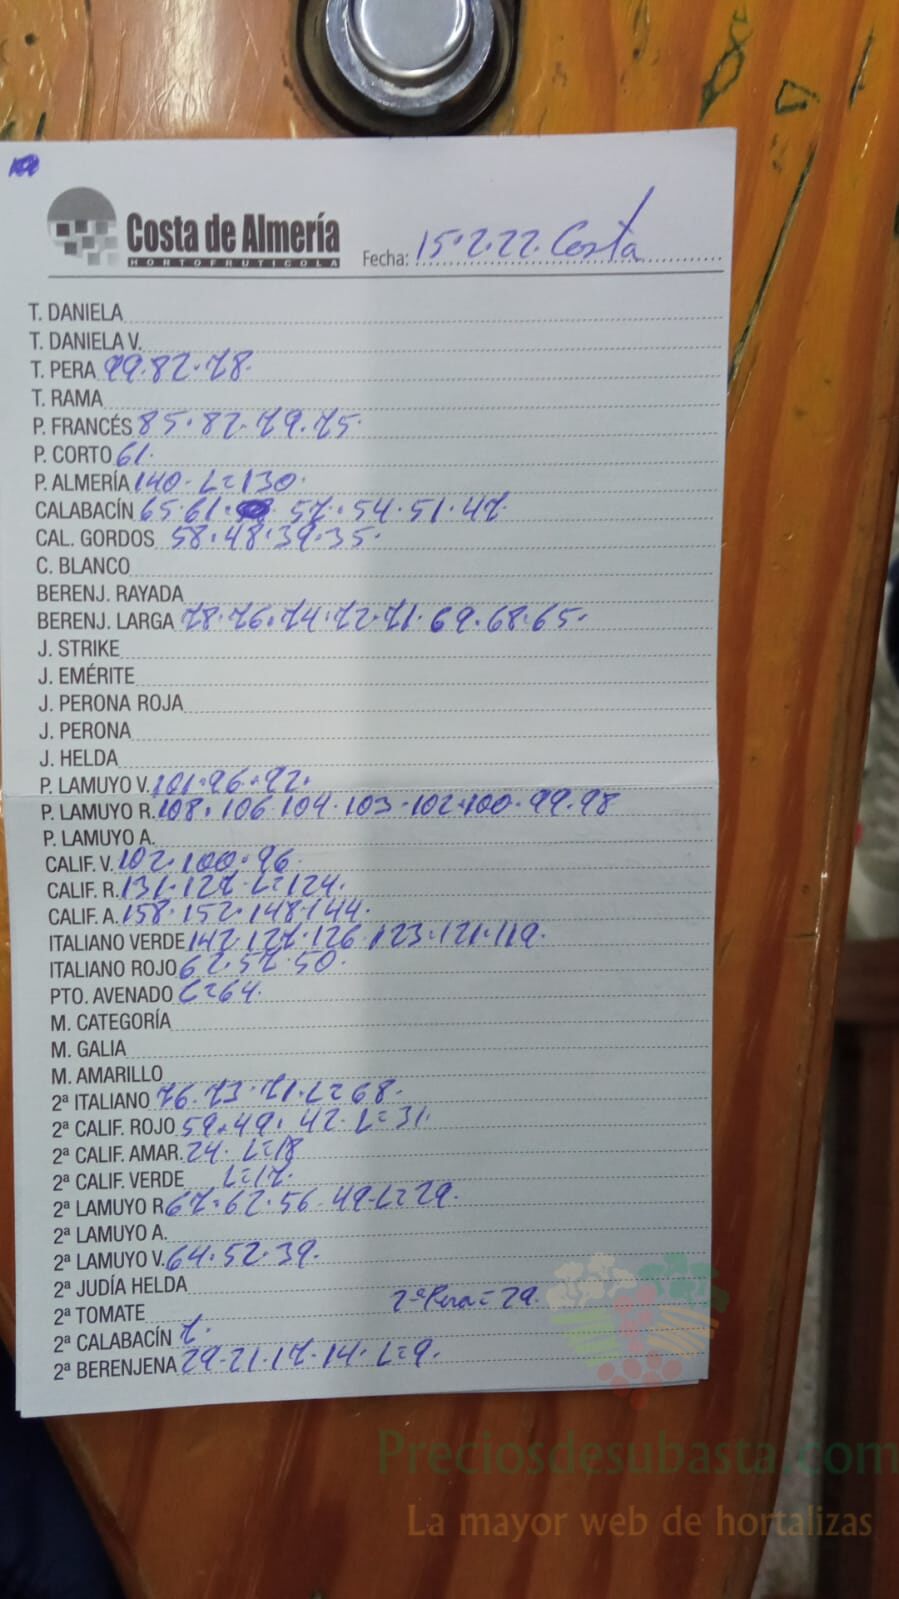 Costa de Almería
HORTOFRUTICOLA
Fecha: 15.2.22. Costa
T. DANIELA
T. DANIELA V.
T. PERA 99.82.78.
T. RAMA
P. FRANCÉS 85.82.79.75.
P. CORTO 61.
P. ALMERÍA 140. L=130.
CALABACÍN 65.61. 57.54.51.47.
CAL. GORDOS 58.48.39.35.
C. BLANCO
BERENJ. RAYADA
BERENJ. LARGA 78.76.74.72.71.69.68.65.
J. STRIKE
J. EMÉRITE
J. PERONA ROJA
J. PERONA
J. HELDA
P. LAMUYO V. 101.96.92.
P. LAMUYO R. 108.106.104.103.102.100.99.98
P. LAMUYO A.
CALIF. V. 102.100.96.
CALIF. R. 131.127.L=124.
CALIF. A. 158.152.148.144.
ITALIANO VERDE 142.127.126.123.121.119.
ITALIANO ROJO 62.57.50.
PTO. AVENADO L=64.
M. CATEGORÍA
M. GALIA
M. AMARILLO
2ª ITALIANO 76.73.71.L=68.
2ª CALIF. ROJO 59.49.42.L=31.
2ª CALIF. AMAR. 24. L=18
2ª CALIF. VERDE L=17.
2ª LAMUYO R. 67.62.56.49.L=29.
2ª LAMUYO A.
2ª LAMUYO V. 64.52.39.
2ª JUDÍA HELDA
2ª TOMATE 2ª Pera=29.
2ª CALABACÍN 7.
2ª BERENJENA 29.21.17.14.L=9.
Preciosdesubasta.com
La mayor web de hortalizas